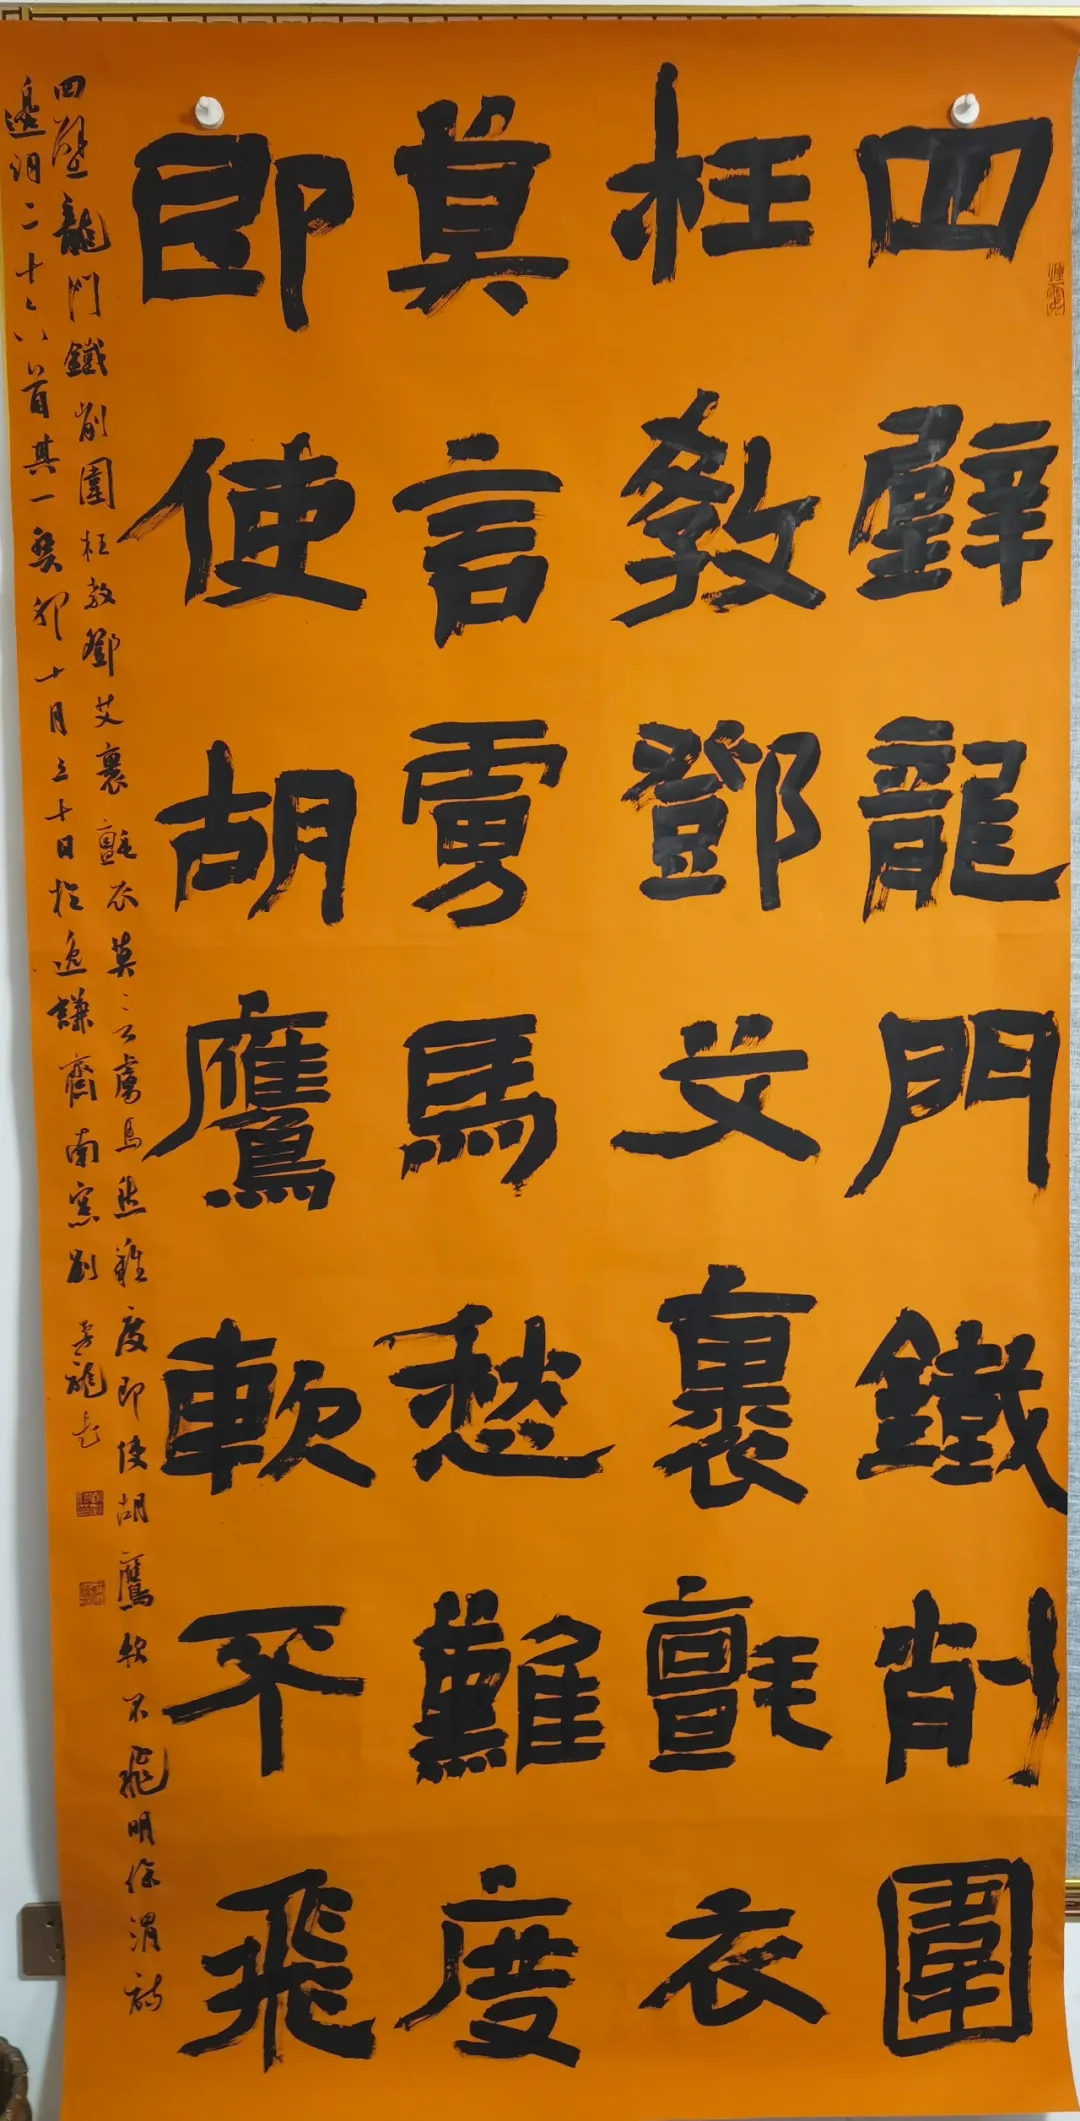 四壁龍門鐵削圍
枉教鄧艾裹氈衣
莫言虜馬愁難度
即使胡鷹軟不飛
四壁龍門鐵削圍枉教鄧艾裹氈衣莫言虜馬愁難度即使胡鷹軟不飛明徐渭詩
邊詞二十六首其一癸卯十月三十日於逸謙齋南窯劉龍書